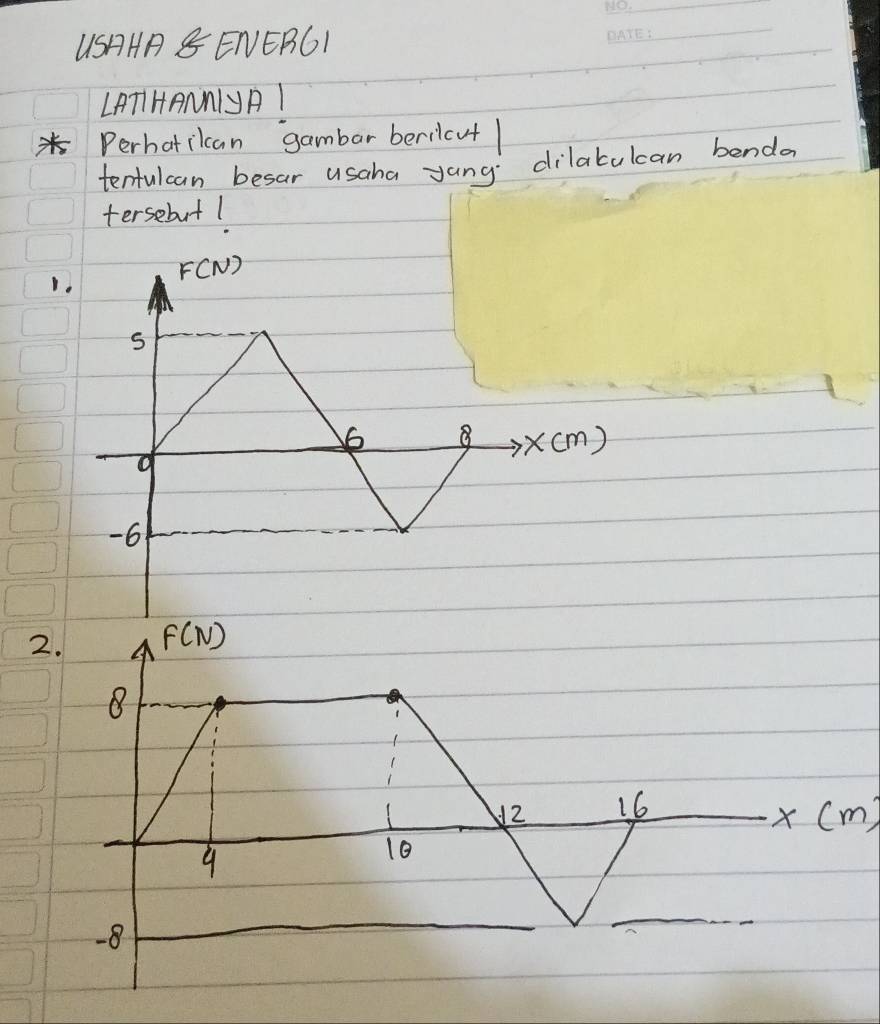 NO.
DATE:
USAHA & ENERGI
LATIHANNYA!
* Perhatikan gambar berikut!
tentukan besar usaha yang dilakukan benda
tersebut!
1.
F(N)
5
0
6
8
X(m)
-6
2.
F(N)
8
12
16
X (m)
4
10
-8